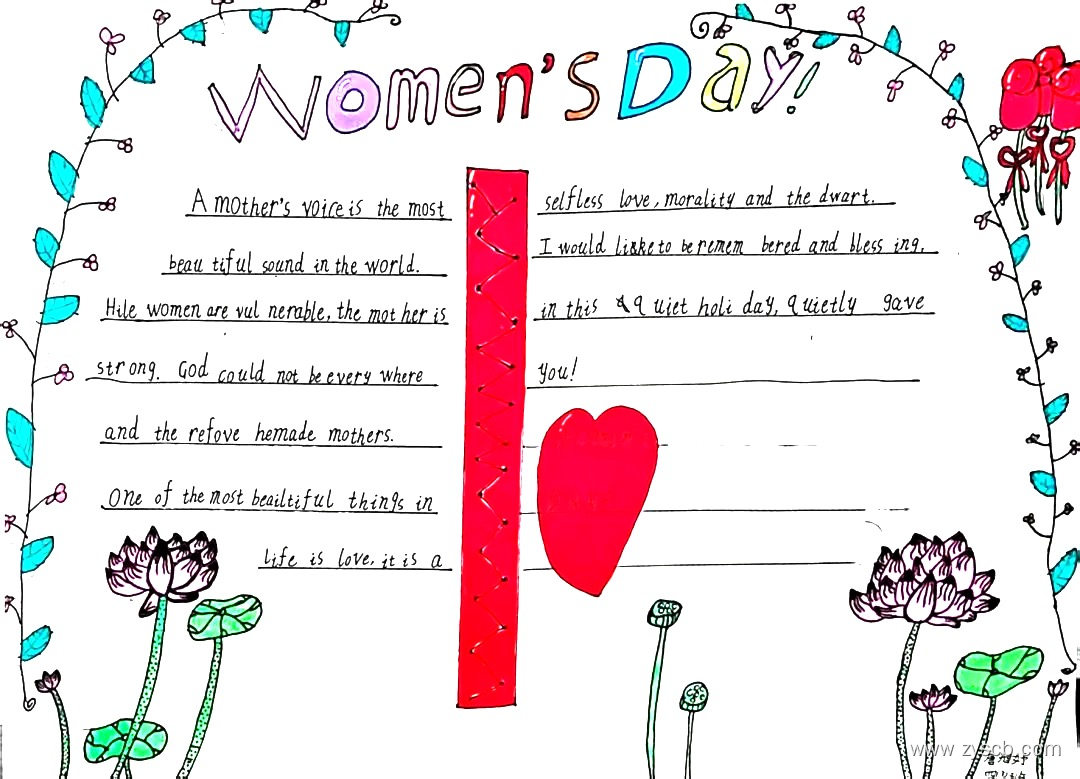 Women's Day!
A mother's voice is the most
beau tiful sound in the world.
Hile women are vul nerable, the mot her is
strong. God could not be every where
and the refove hemade mothers.
One of the most beailtiful things in
life is love, it is a
selfless love, morality and the dwart.
I would liske to be remem bered and bless ing.
in this quiet holi day, quietly gave
you!
www.zyscb.com